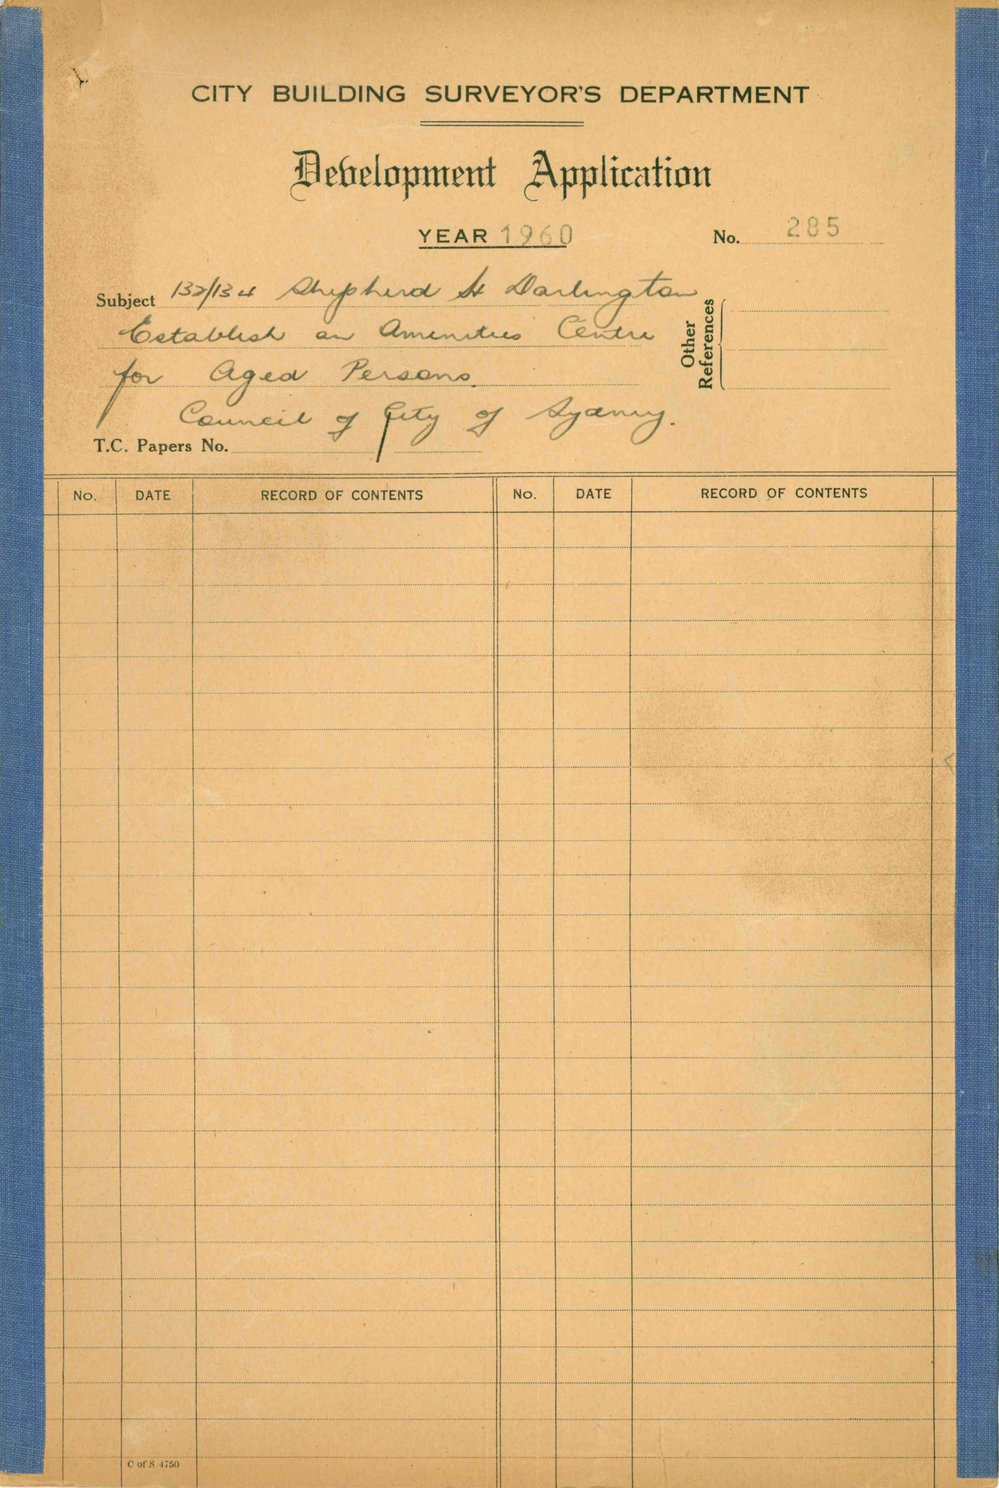 CITY BUILDING SURVEYOR'S DEPARTMENT
Development Application
YEAR 1960 No. 285
Subject 132/134 Shepherd St Darlington
Establish an Amenities Centre
for Aged Persons.
Council of City of Sydney.
Other References
T.C. Papers No.
No. DATE RECORD OF CONTENTS No. DATE RECORD OF CONTENTS
C of S 4750